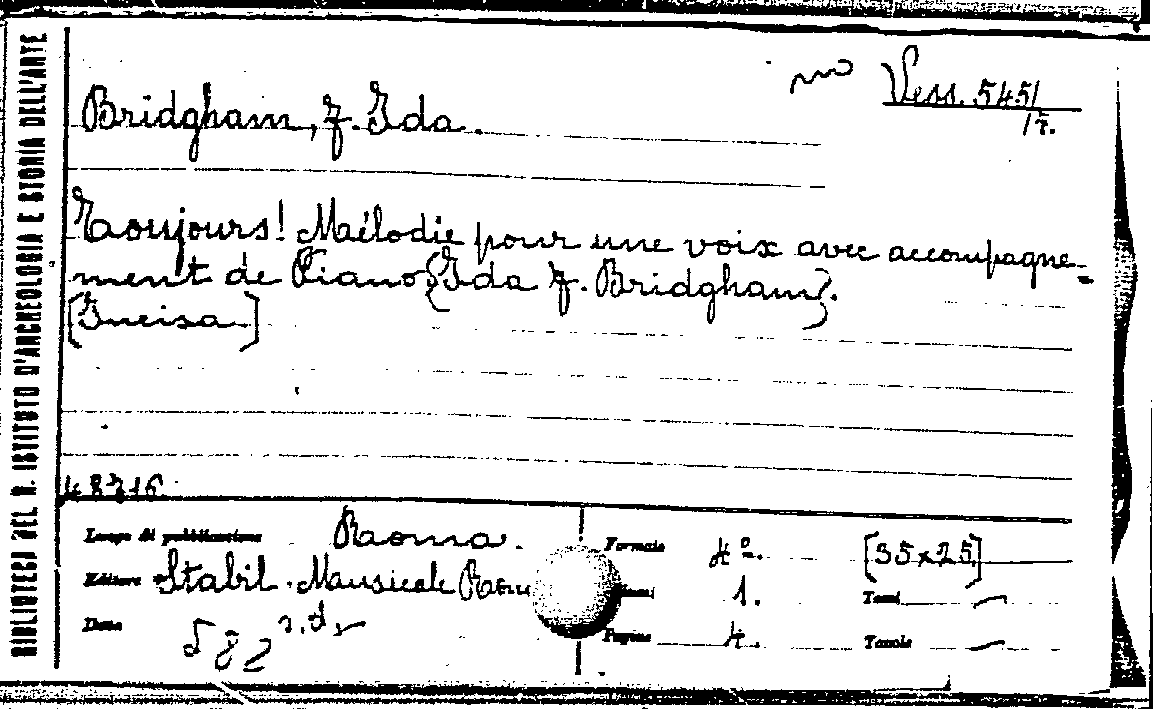 BIBLIOTECA DEL R. ISTITUTO D'ARCHEOLOGIA E STORIA DELL'ARTE
Vess. 545/
17.
Bridgham, F. Ida.
Toujours! Mélodie pour une voix avec accompagne-
ment de Piano (Ida F. Bridgham).
[Incisa]
48316
Luogo di pubblicazione Roma. Formato 4º. [35x25]
Editore Stabil. Musicale Rom Volumi 1. Tomi —
Data 582 s.d. Pagine 4. Tavole —